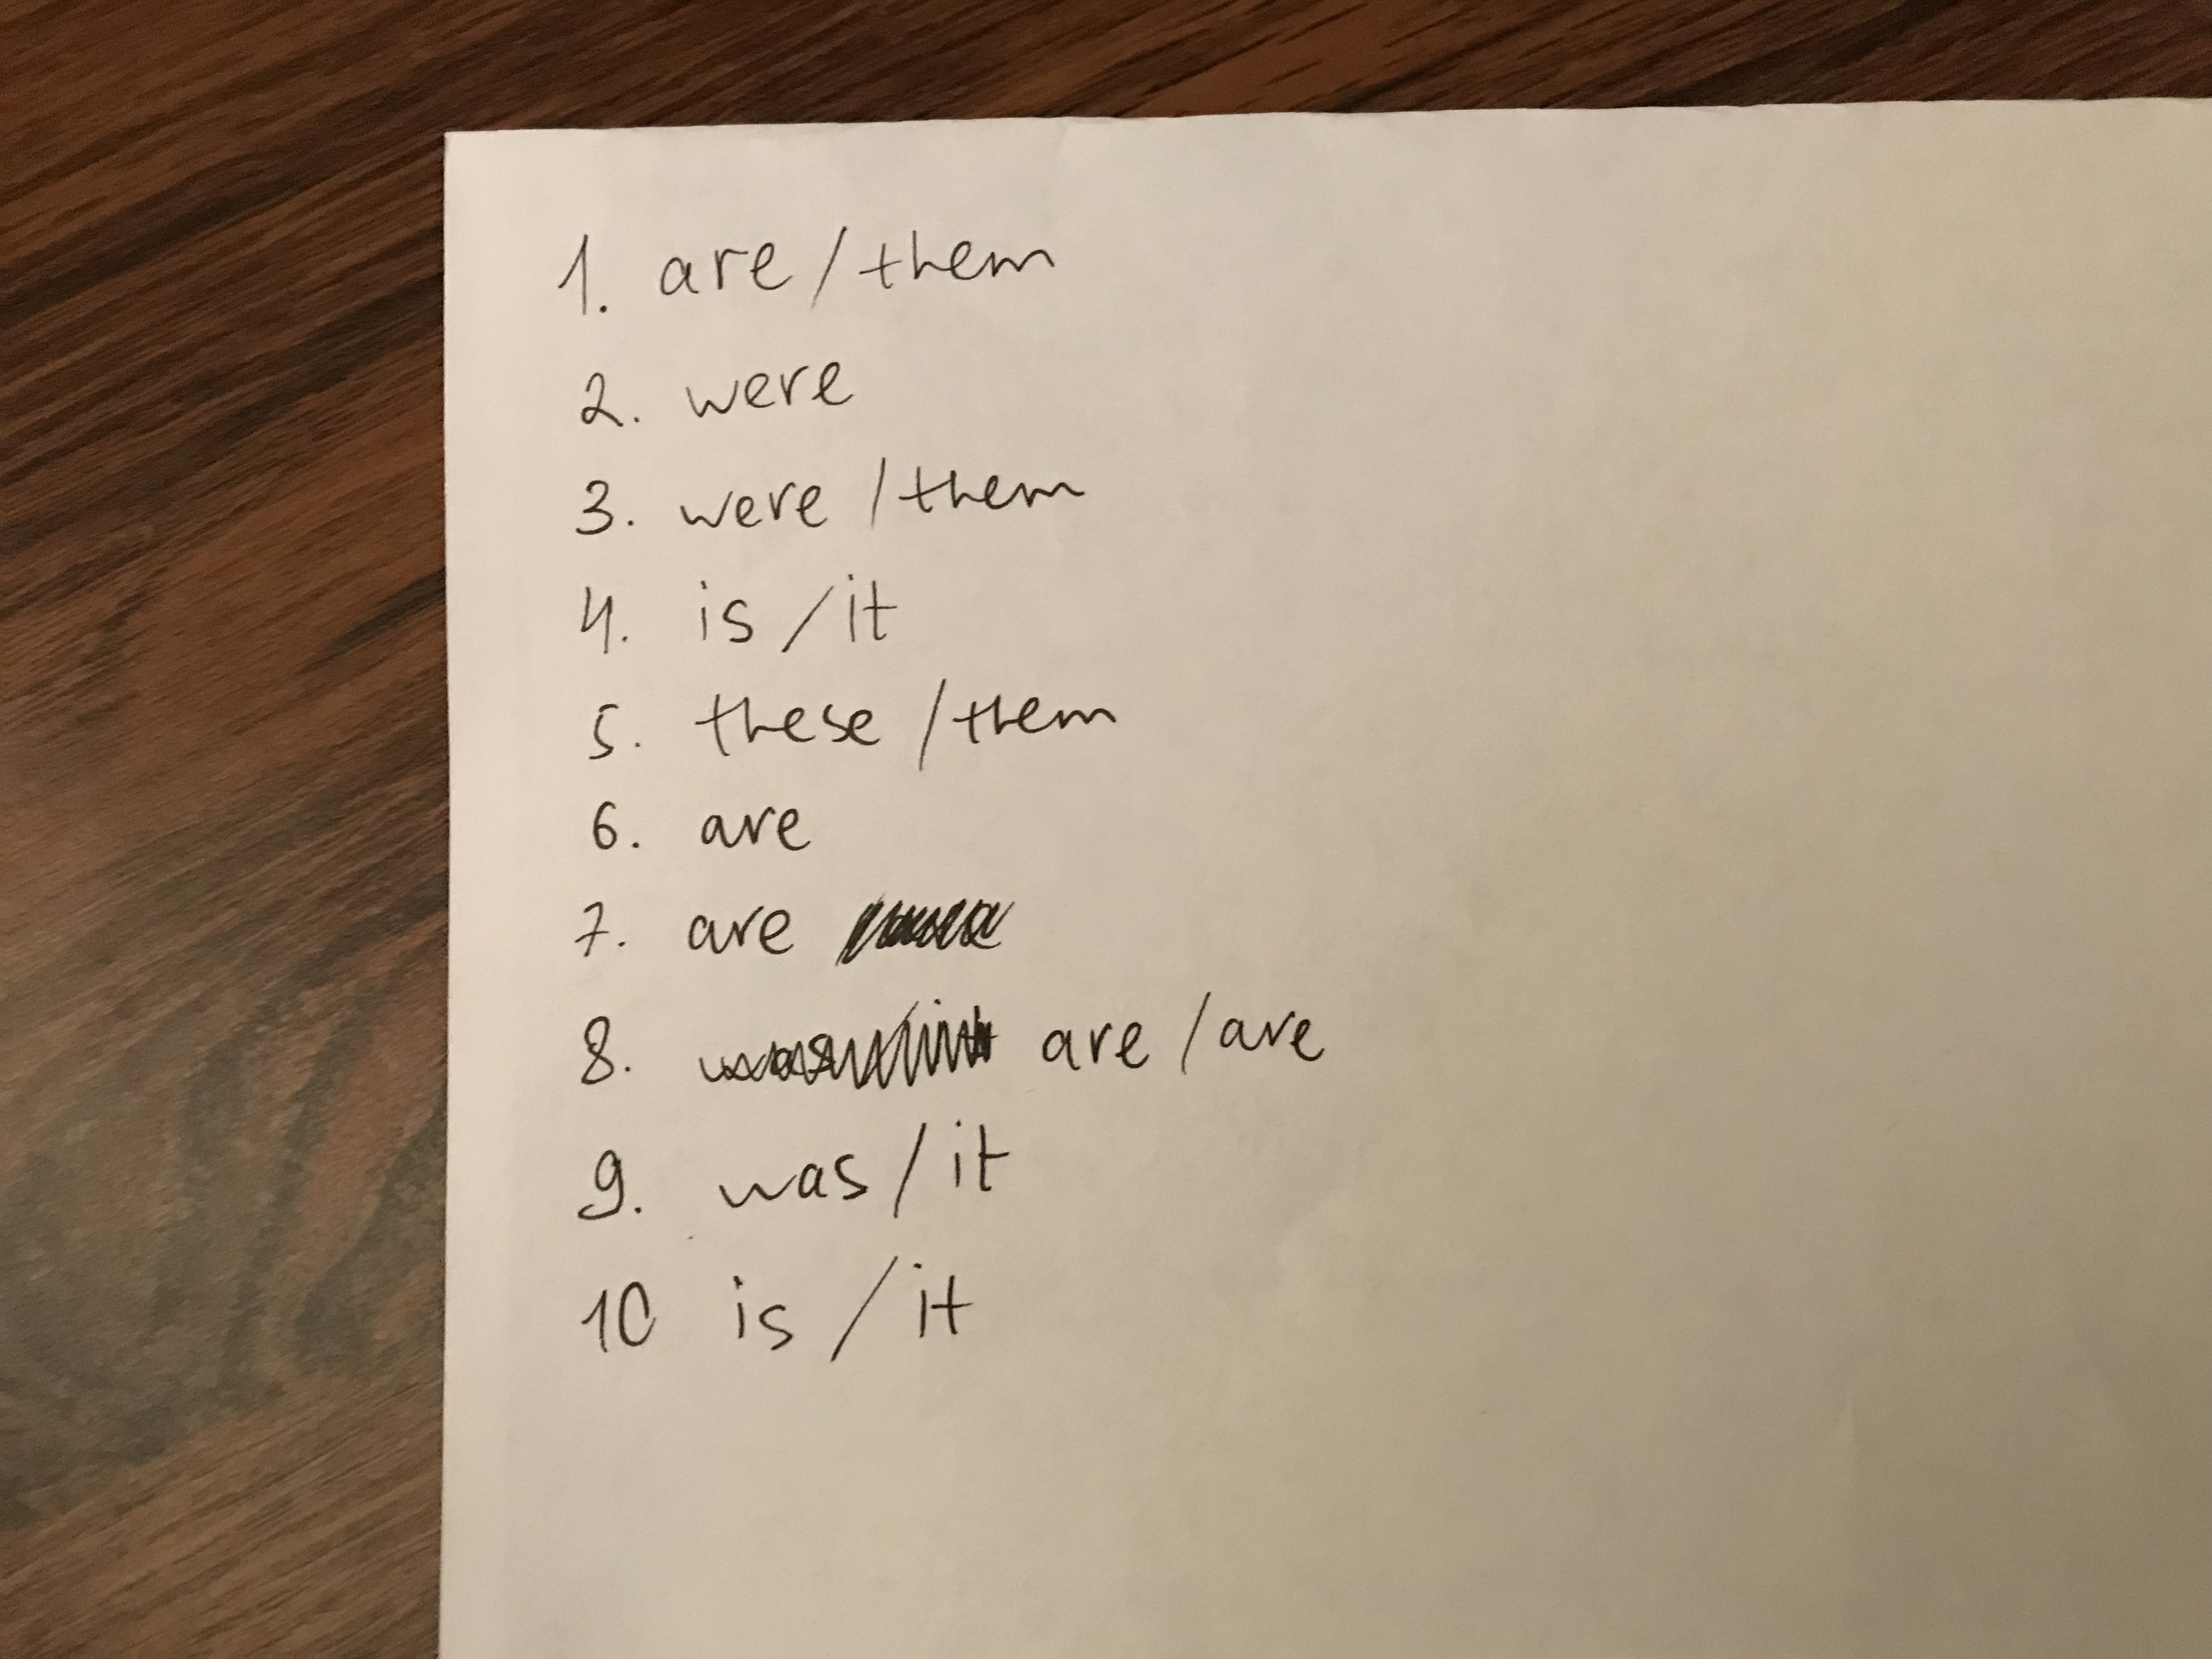 1. are / them
2. were
3. were / them
4. is / it
5. these / them
6. are
7. are
8. are / are
9. was / it
10 is / it